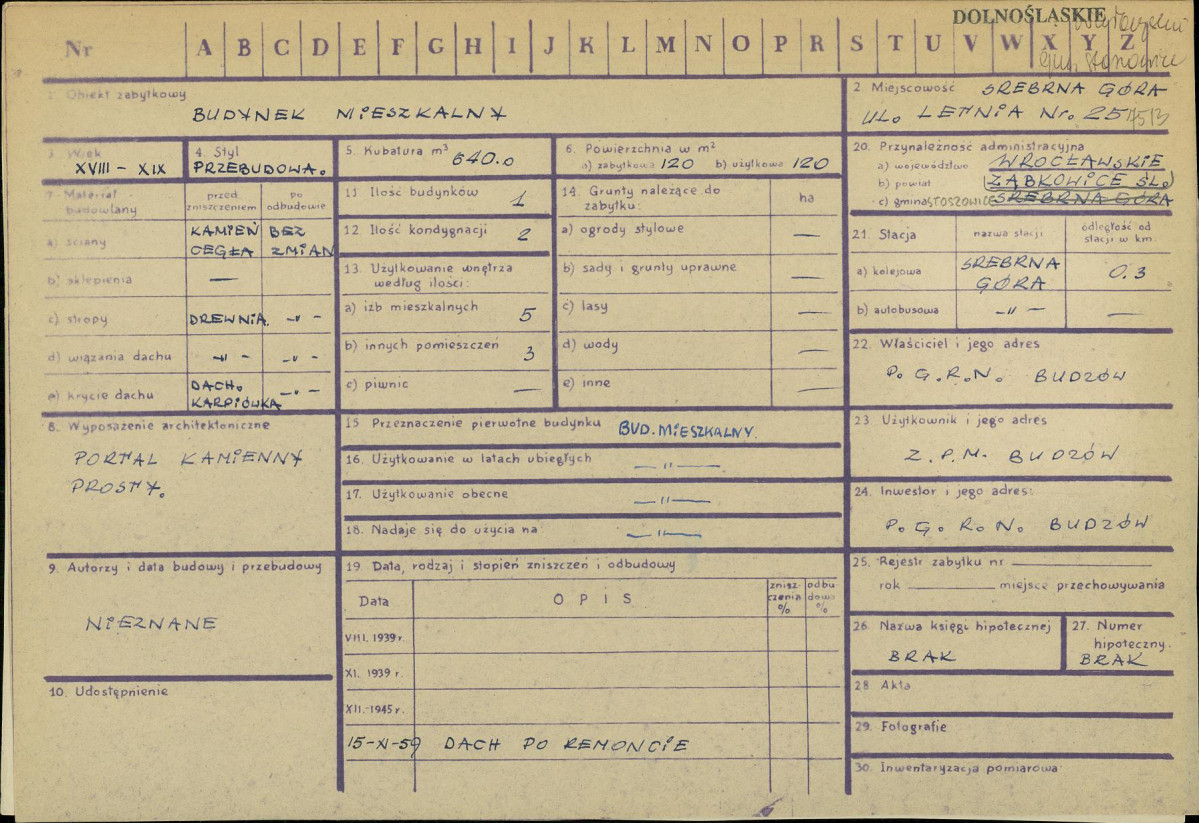 DOLNOŚLĄSKIE
Nr A B C D E F G H I J K L M N O P R S T U V W X Y Z
1. Obiekt zabytkowy
BUDYNEK MIESZKALNY
2. Miejscowość SREBRNA GÓRA
UL. LETNIA Nr. 25
3. Wiek
XVIII - XIX
4. Styl
PRZEBUDOWA.
5. Kubatura m³ 640.0
6. Powierzchnia w m²
a) zabytkowa 120 b) użytkowa 120
20. Przynależność administracyjna
a) województwo WROCŁAWSKIE
b) powiat ZĄBKOWICE ŚL.
c) gmina STOSZOWICE SREBRNA GÓRA
7. Materiał budowlany
przed zniszczeniem
po odbudowie
a) ściany KAMIEŃ CEGŁA BEZ ZMIAN
b) sklepienia —
c) stropy DREWNIA. -"-
d) wiązania dachu -"- -"-
e) krycie dachu DACH. KARPIÓWKA -"-
11 Ilość budynków 1
12 Ilość kondygnacji 2
13. Użytkowanie wnętrza
według ilości:
a) izb mieszkalnych 5
b) innych pomieszczeń 3
c) piwnic —
14. Grunty należące do
zabytku: ha
a) ogrody stylowe —
b) sady i grunty uprawne —
c) lasy —
d) wody —
e) inne —
21. Stacja nazwa stacji odległość od stacji w km.
a) kolejowa SREBRNA GÓRA 0.3
b) autobusowa -"- —
22. Właściciel i jego adres
P.G.R.N. BUDZÓW
8. Wyposażenie architektoniczne
PORTAL KAMIENNY
PROSTY.
15 Przeznaczenie pierwotne budynku BUD. MIESZKALNY.
16. Użytkowanie w latach ubiegłych —"—
17. Użytkowanie obecne —"—
18. Nadaje się do użycia na: —"—
23. Użytkownik i jego adres
Z.P.M. BUDZÓW
24. Inwestor i jego adres:
P.G.R.N. BUDZÓW
9. Autorzy i data budowy i przebudowy
NIEZNANE
10. Udostępnienie
19 Data, rodzaj i stopień zniszczeń i odbudowy
Data OPIS znisz-czenia % odbu-dowa %
VIII. 1939 r.
XI. 1939 r.
XII.-1945 r.
15-XI-59 DACH PO REMONCIE
25. Rejestr zabytku nr
rok miejsce przechowywania
26. Nazwa księgi hipotecznej
BRAK
27. Numer
hipoteczny.
BRAK
28 Akta
29. Fotografie
30. Inwentaryzacja pomiarowa